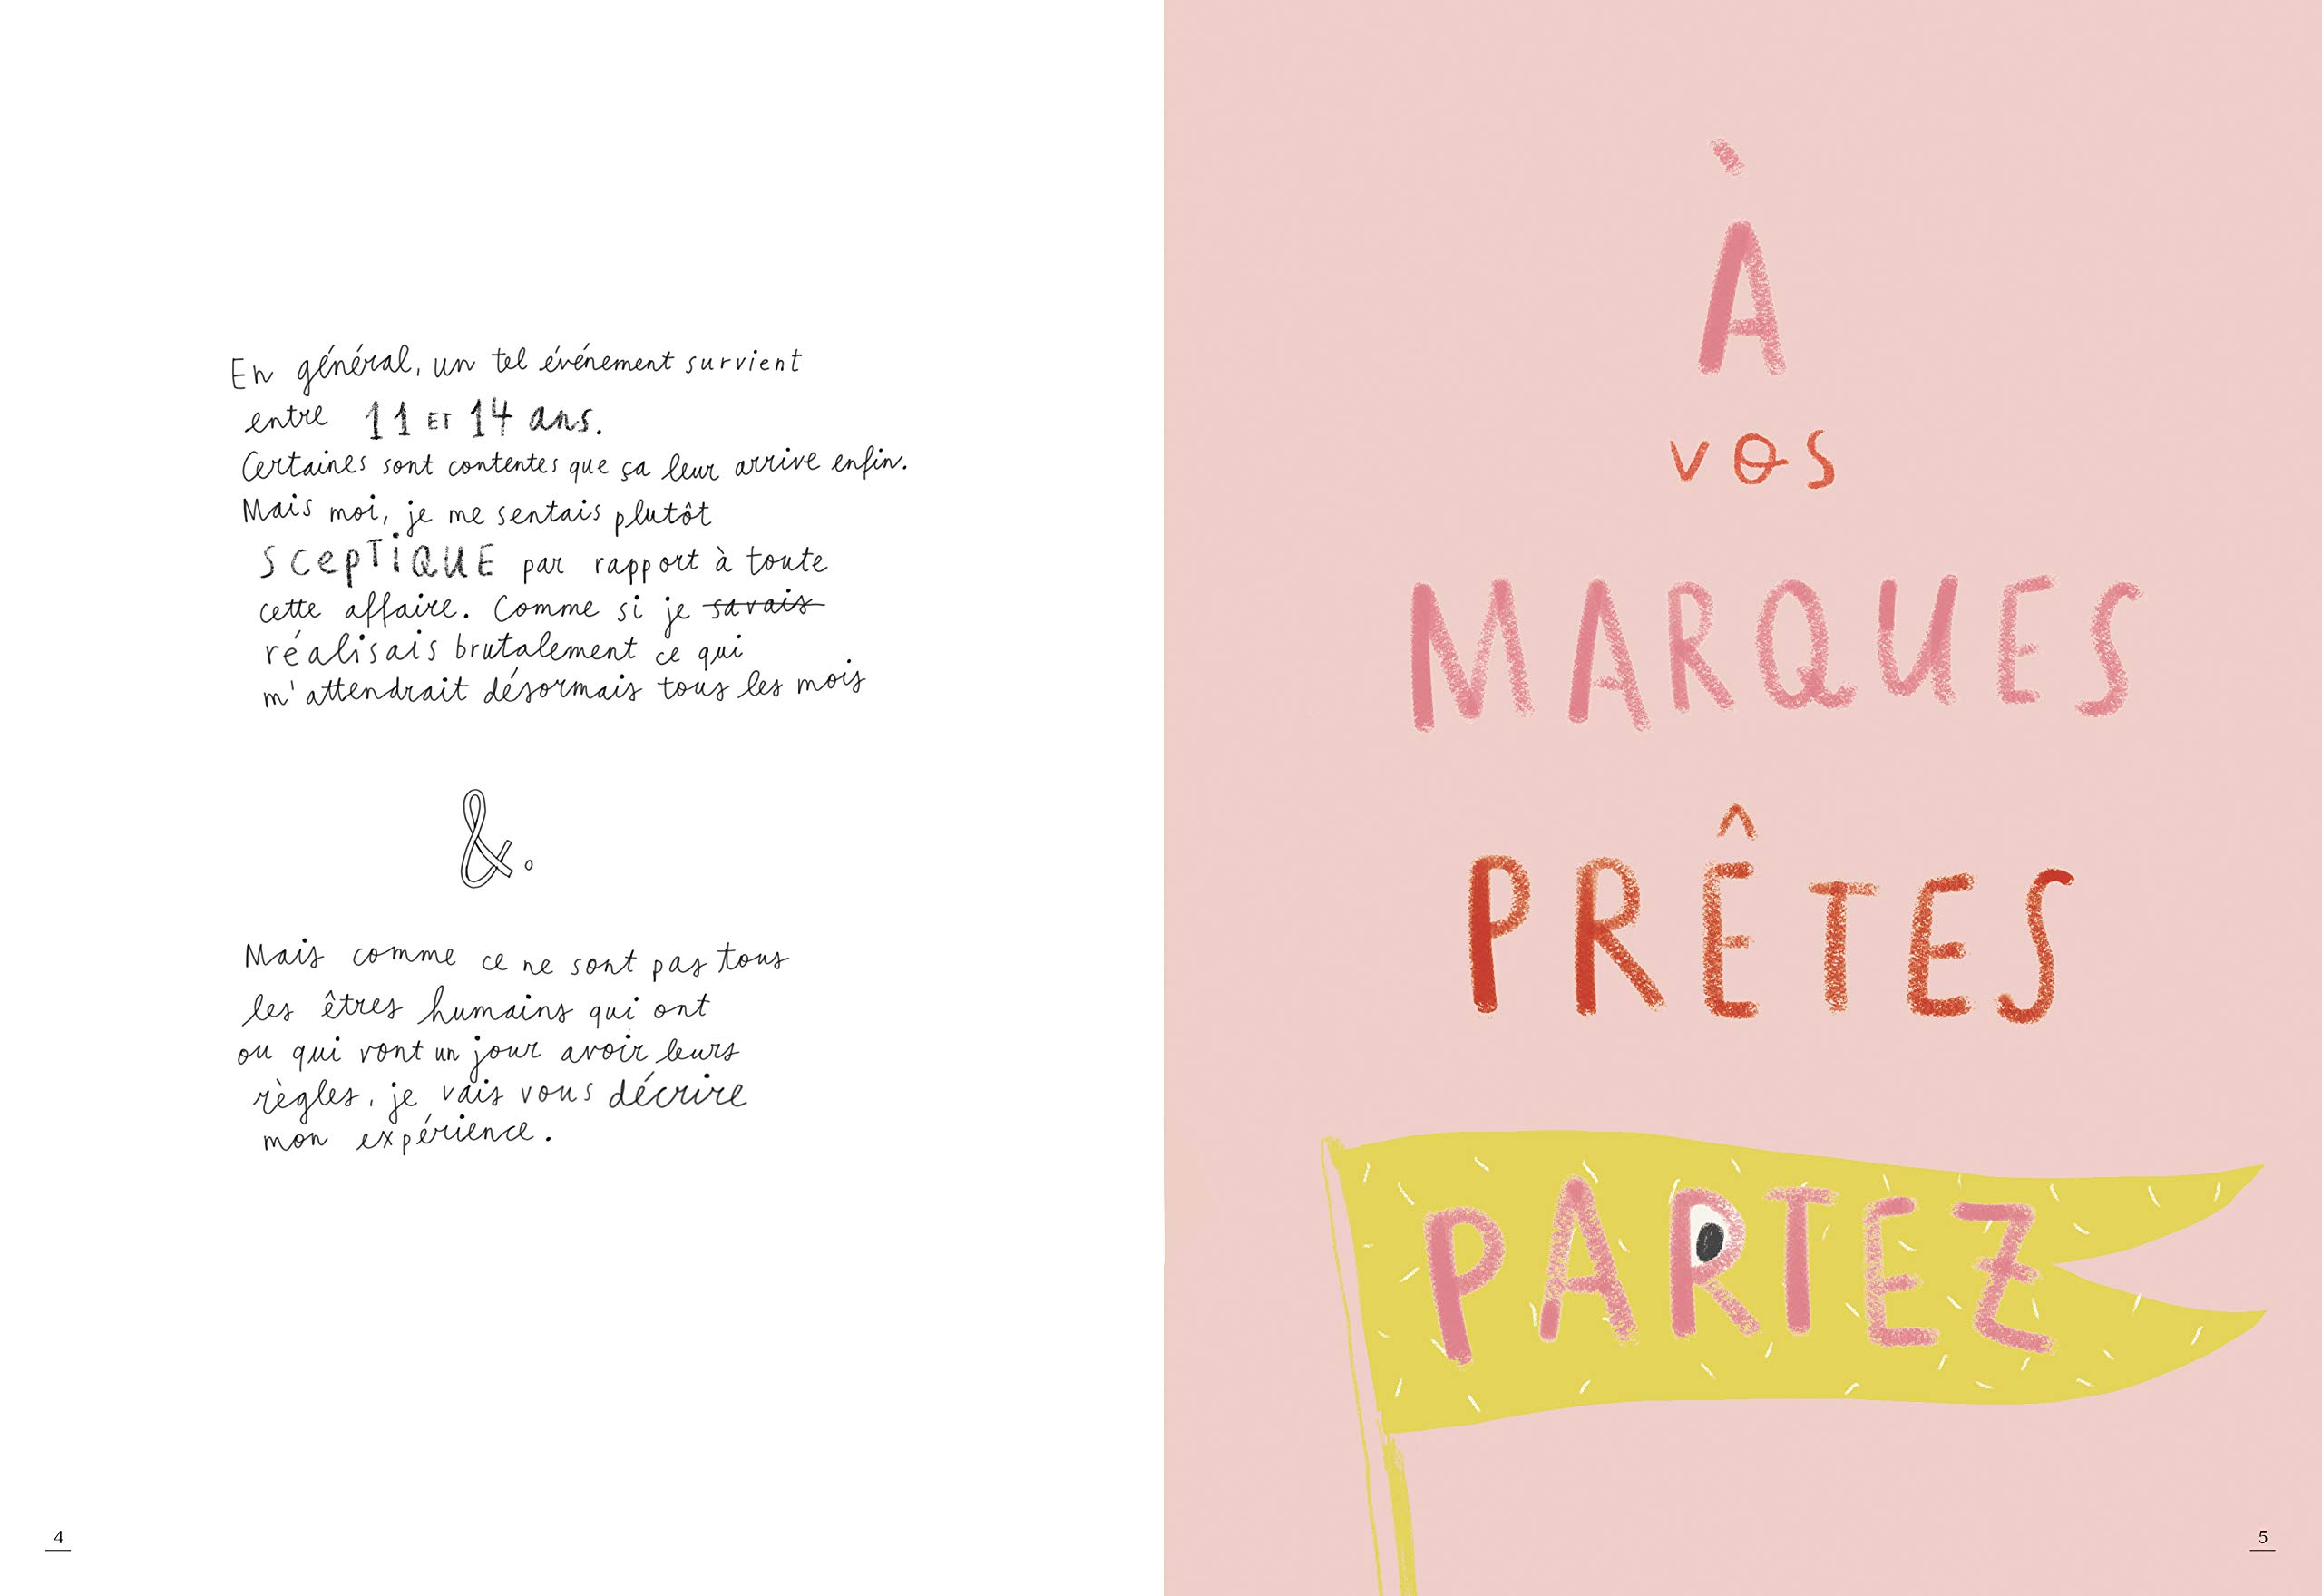 En général, un tel événement survient
entre 11 ET 14 ans.
Certaines sont contentes que ça leur arrive enfin.
Mais moi, je me sentais plutôt
SCepTiQUE par rapport à toute
cette affaire. Comme si je savais
réalisais brutalement ce qui
m'attendrait désormais tous les mois
&.
Mais comme ce ne sont pas tous
les êtres humains qui ont
ou qui vont un jour avoir leurs
règles, je vais vous décrire
mon expérience.
4
À
vos
MARQUES
PRÊTES
PARTEZ
5